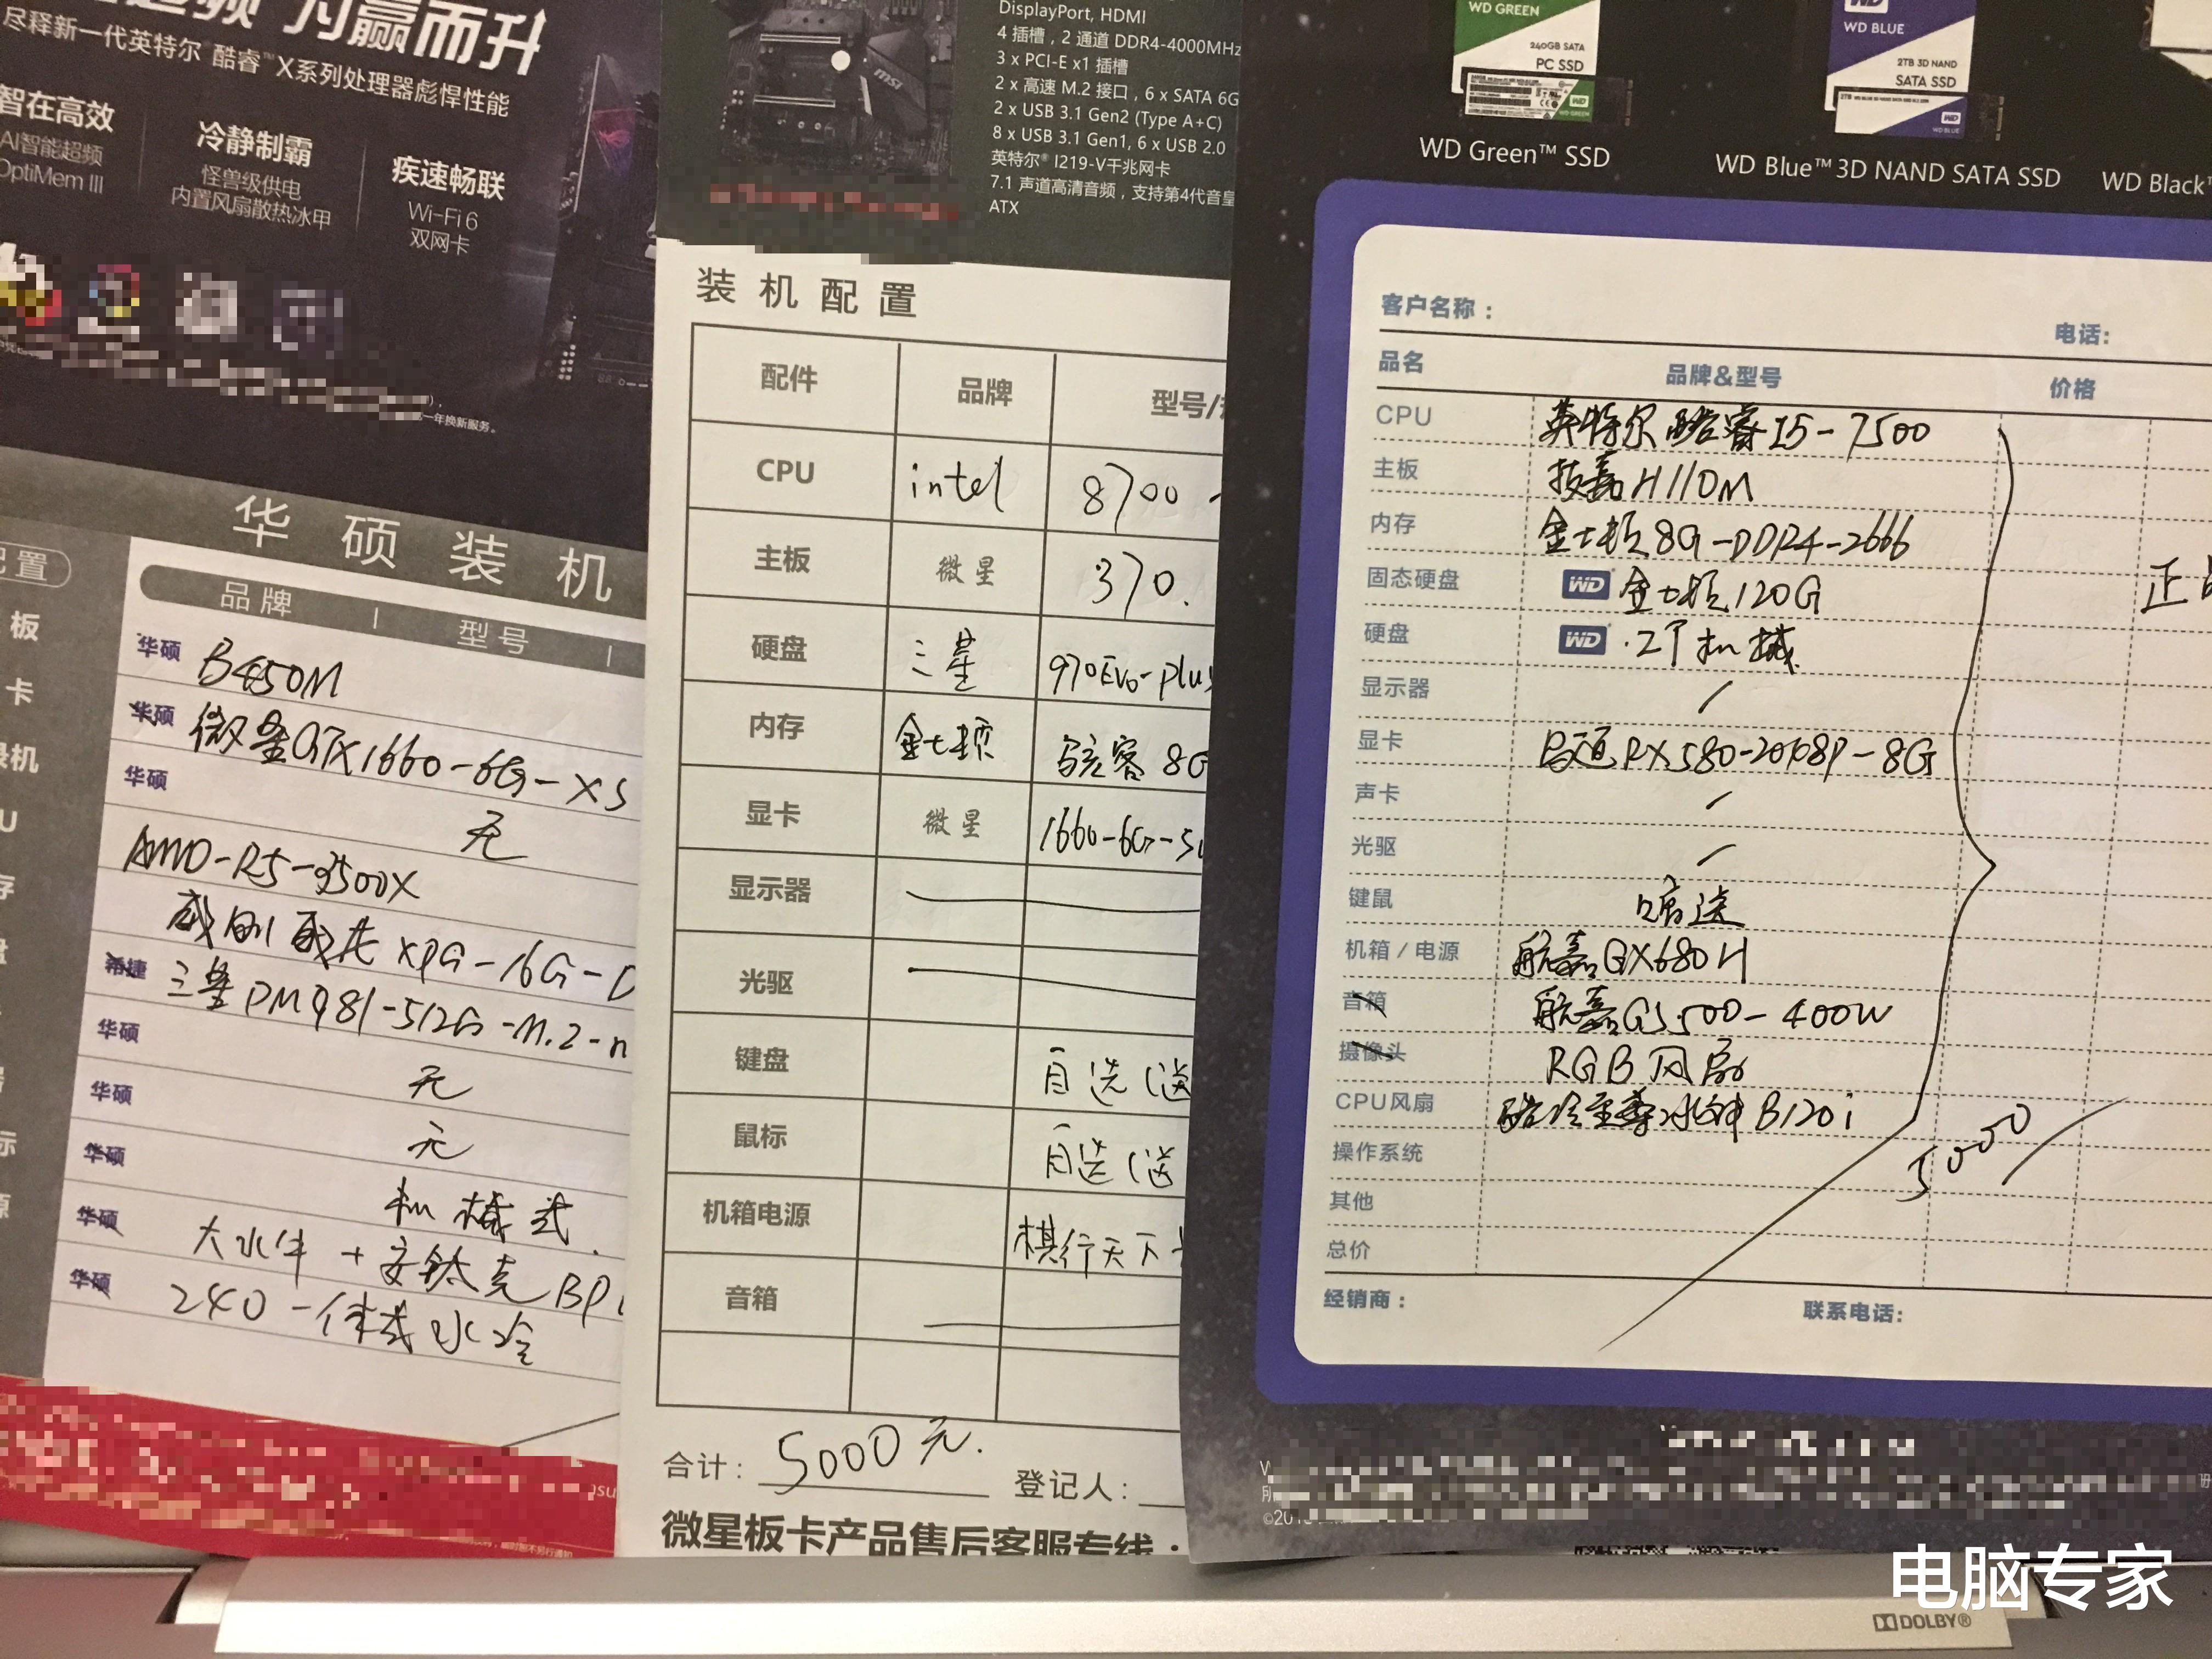 为赢而升
尽释新一代英特尔 酷睿™X系列处理器彪悍性能
智在高效
AI智能超频
OptiMem III
冷静制霸
怪兽级供电
内置风扇散热冰甲
疾速畅联
Wi-Fi 6
双网卡
一年换新服务。
华硕装机
配置
品牌 | 型号 |
板 华硕 B450M
卡 华硕 微星GTX1660-6G-XS
录机 华硕 无
U AMD-R5-3500X
存 威刚 XPG-16G-D
盘 希捷 三星PM981-512G-M.2-n
华硕 无
华硕 无
标 华硕 机械式.
源 华硕 大水牛+安钛克BP
华硕 240一体式水冷
msi
DisplayPort, HDMI
4 插槽，2 通道 DDR4-4000MHz
3 x PCI-E x1 插槽
2 x 高速 M.2 接口，6 x SATA 6G
2 x USB 3.1 Gen2 (Type A+C)
8 x USB 3.1 Gen1, 6 x USB 2.0
英特尔® I219-V千兆网卡
7.1 声道高清音频，支持第4代音皇
ATX
装机配置
配件 品牌 型号/
CPU intel 8700-
主板 微星 370.
硬盘 三星 970Evo-plus
内存 金士顿 骇客 8G
显卡 微星 1660-6G-
显示器
光驱
键盘 自选(送
鼠标 自选(送
机箱电源 棋行天下
音箱
合计： 5000元. 登记人：
微星板卡产品售后客服专线：
WD GREEN
240GB SATA
PC SSD
WD Green™ SSD
WD
WD BLUE
2TB 3D NAND
SATA SSD
WD Blue™ 3D NAND SATA SSD
WD Black
客户名称： 电话:
品名 品牌&型号 价格
CPU 英特尔酷睿I5-7500
主板 技嘉H110M
内存 金士顿8G-DDR4-2666
固态硬盘 WD 金士顿120G
正品
硬盘 WD .2T机械
显示器 /
显卡 RX580-2048P-8G
声卡 /
光驱 /
键鼠 送
机箱 / 电源 航嘉GX680H
音箱 航嘉GS500-400W
摄像头 RGB风扇
CPU风扇 酷冷至尊冰神B120i
5000
操作系统
其他
总价
经销商： 联系电话:
电脑专家
DOLBY®